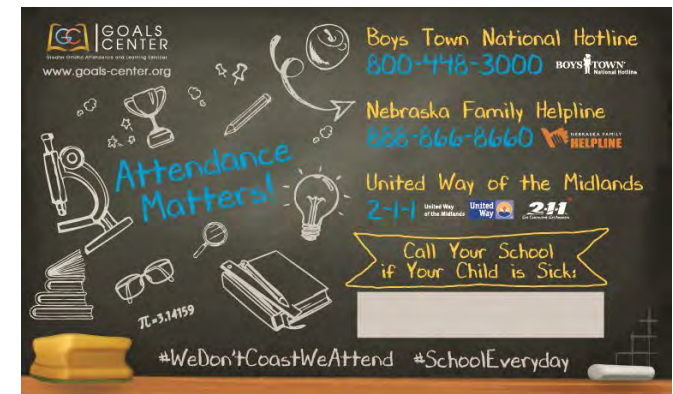 GC GOALS CENTER
Greater Omaha Attendance and Learning Services
www.goals-center.org
Attendance
Matters!
π=3.14159
Boys Town National Hotline
800-448-3000
BOYS TOWN
National Hotline
Nebraska Family Helpline
888-866-8660
NEBRASKA FAMILY
HELPLINE
United Way of the Midlands
2-1-1
United Way
of the Midlands
United
Way
2-1-1
Get Connected. Get Answers.
Call Your School
if Your Child is Sick:
#WeDon'tCoastWeAttend #SchoolEveryday